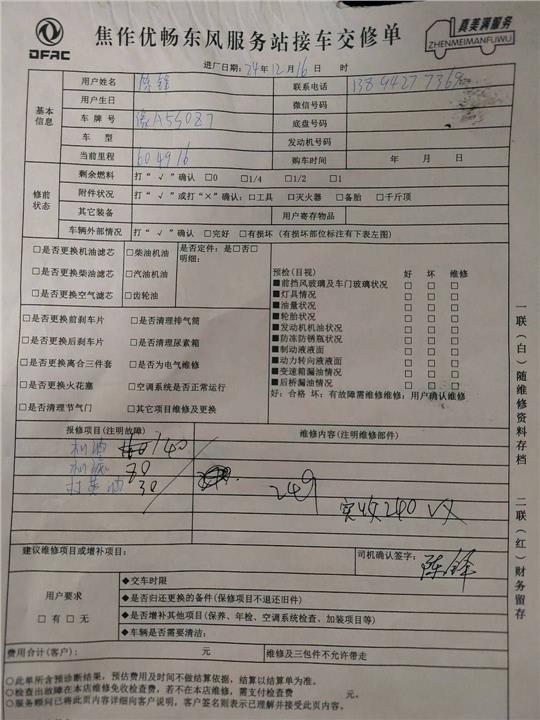 DFAC
焦作优畅东风服务站接车交修单
真美满服务
ZHENMEIMANFUWU
进厂日期：24年12月16日 时
基本信息
用户姓名 陈锋 联系电话
用户生日 微信号码
车牌号 豫A55087 底盘号码
车型 发动机号码
当前里程 604916 购车时间 年 月 日
修前状态
剩余燃料 打“√”确认 □0 □1/4 □1/2 □1
附件状况 打“√”或打“×”确认：□工具 □灭火器 □备胎 □千斤顶
其它装备 用户寄存物品
车辆外部情况 打“√”确认 □完好 □有损坏（有损坏部位标注有下表左图）
□是否更换机油滤芯 □柴油机油 是否定件：是□否□
□是否更换柴油滤芯 □汽油机油 明细：
□是否更换空气滤芯 □齿轮油
□是否更换前刹车片 □是否清理排气筒
□是否更换后刹车片 □是否清理尿素箱
□是否更换离合三件套 □是否为电气维修
□是否更换火花塞 □空调系统是否正常运行
□是否清理节气门 □其它项目维修及更换
预检（目视） 好 坏 维修
■前挡风玻璃及车门玻璃状况 □ □ □
■灯具情况 □ □ □
■油量状况 □ □ □
■轮胎状况 □ □ □
■发动机机油状况 □ □ □
■防冻防锈瓶状况 □ □ □
■制动液液面 □ □ □
■动力转向液液面 □ □ □
■变速箱漏油情况 □ □ □
■后桥漏油情况 □ □ □
好：合格 坏：有故障需维修维修：用户确认维修
报修项目（注明故障） 维修内容（注明维修部件）
机油 140
机滤 70
打黄油 30
249
实收240 VX
建议维修项目或增补项目： 司机确认签字： 陈锋
用户要求
□有 □无
◆交车时限
◆是否归还更换的备件（保修项目不退还旧件）
◆是否增补其他项目（保养、年检、空调系统检查、加装项目等）
◆车辆是否需要清洁：
费用合计（客户）： 元 维修及三包件不允许带走
○此单所含预诊断结果，预估费用及时间不做结算依据，结算以结算单为准。
○检查出故障在本店维修免收检查费，若不在本店维修，需支付检查费 元。
○服务顾问已将此页内容详细向客户说明，客户签名则表示已理解并接受此页内容。
一联（白）随维修资料存档
二联（红）财务留存